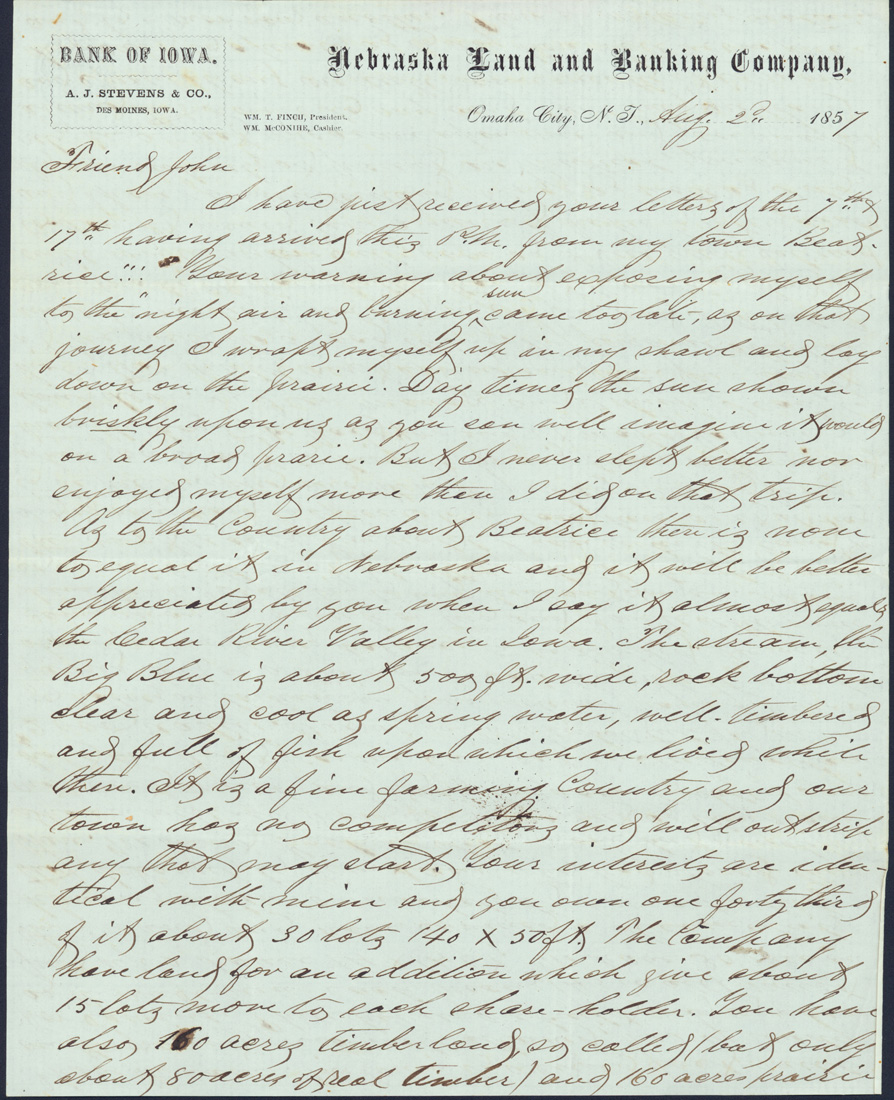 BANK OF IOWA.
A. J. STEVENS & CO.,
DES MOINES, IOWA.
Nebraska Land and Banking Company,
WM. T. FINCH, President.
WM. McCONIHE, Cashier.
Omaha City, N. T., Aug. 2d, 1857
Friend John
I have just received your letters of the 7th &
17th having arrived this P.M. from my town Beat-
rice!!! Your warning about exposing myself
to the "night air and burning sun came too late, as on that
journey I wrapt myself up in my shawl and lay
down on the prairie. Day times the sun shown
briskly upon us as you can well imagine it would
on a broad prarie. But I never slept better nor
enjoyed myself more then I did on that trip.
As to the Country about Beatrice there is none
to equal it in Nebraska and it will be better
appreciated by you when I say it almost equals
the Cedar River Valley in Iowa. The stream, the
Big Blue is about 500 ft. wide, rock bottom
clear and cool as spring water, well-timbered
and full of fish upon which we lived while
there. It is a fine farming Country and our
town has no competitors and will outstrip
any that may start. Your interests are iden-
tical with mine and you own one forty third
of it about 30 lots 140 X 50 ft. The Company
have land for an addition which give about
15 lots more to each share-holder. You have
also 160 acres timberland, so called (but only
about 80 acres of real timber) and 160 acres prairie